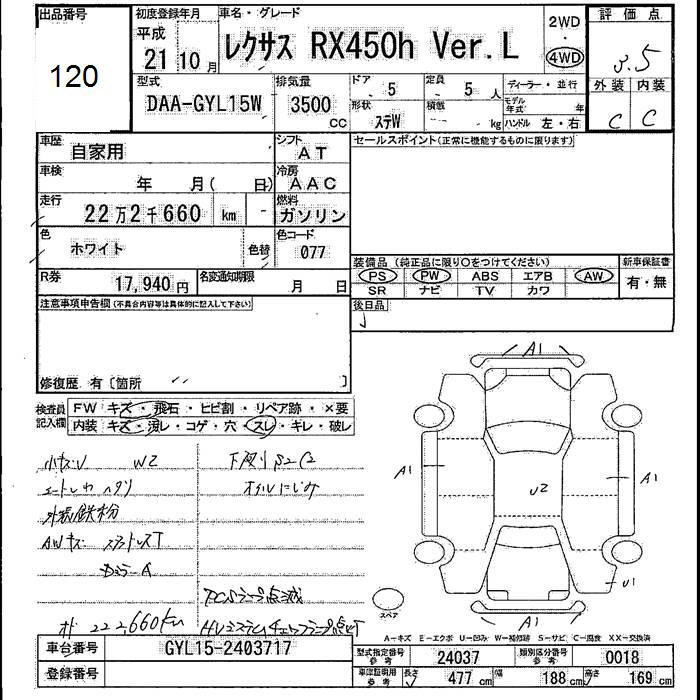 出品番号 初度登録年月 車名・グレード 2WD 評価点
120 平成 21 10月 レクサス RX450h Ver.L 4WD 3.5
型式 排気量 ドア 5 定員 5人 ディーラー・並行 外装 内装
DAA-GYL15W 3500cc 形状 ステW 積載 kg モデル年式 年 ハンドル 左・右 C C
車歴 自家用 シフト AT セールスポイント(正常に機能するものに限ります)
車検 年 月( 日) 冷房 AAC
走行 22万2千660 km 燃料 ガソリン
色 ホワイト 色替 色コード 077
装備品 (純正品に限り○をつけてください) 新車保証書
PS PW ABS エアB AW 有・無
R券 17,940円 名変通知期限 月 日 SR ナビ TV カワ
注意事項申告欄(不具合内容等は具体的に記入して下さい) 後日品
修復歴 有〔箇所 〕
検査員記入欄 FW キズ・飛石・ヒビ割・リペア跡・×要
内装 キズ・汚レ・コゲ・穴・スレ・キレ・破レ
A1
小キズU W2 下廻り S2C2
オイルにじみ
A1 U2 A1
外装鉄粉
AWキズ
U1
スペア
A1
オド 222,660km HVシステムチェックランプ点灯
A-キズ E-エクボ U-凹み W-補修跡 S-サビ C-腐食 XX-交換済
車台番号 GYL15-2403717 型式指定番号 参考 24037 類別区分番号 参考 0018
登録番号 車庫証明用 参考 長さ 477cm 幅 188cm 高さ 169cm